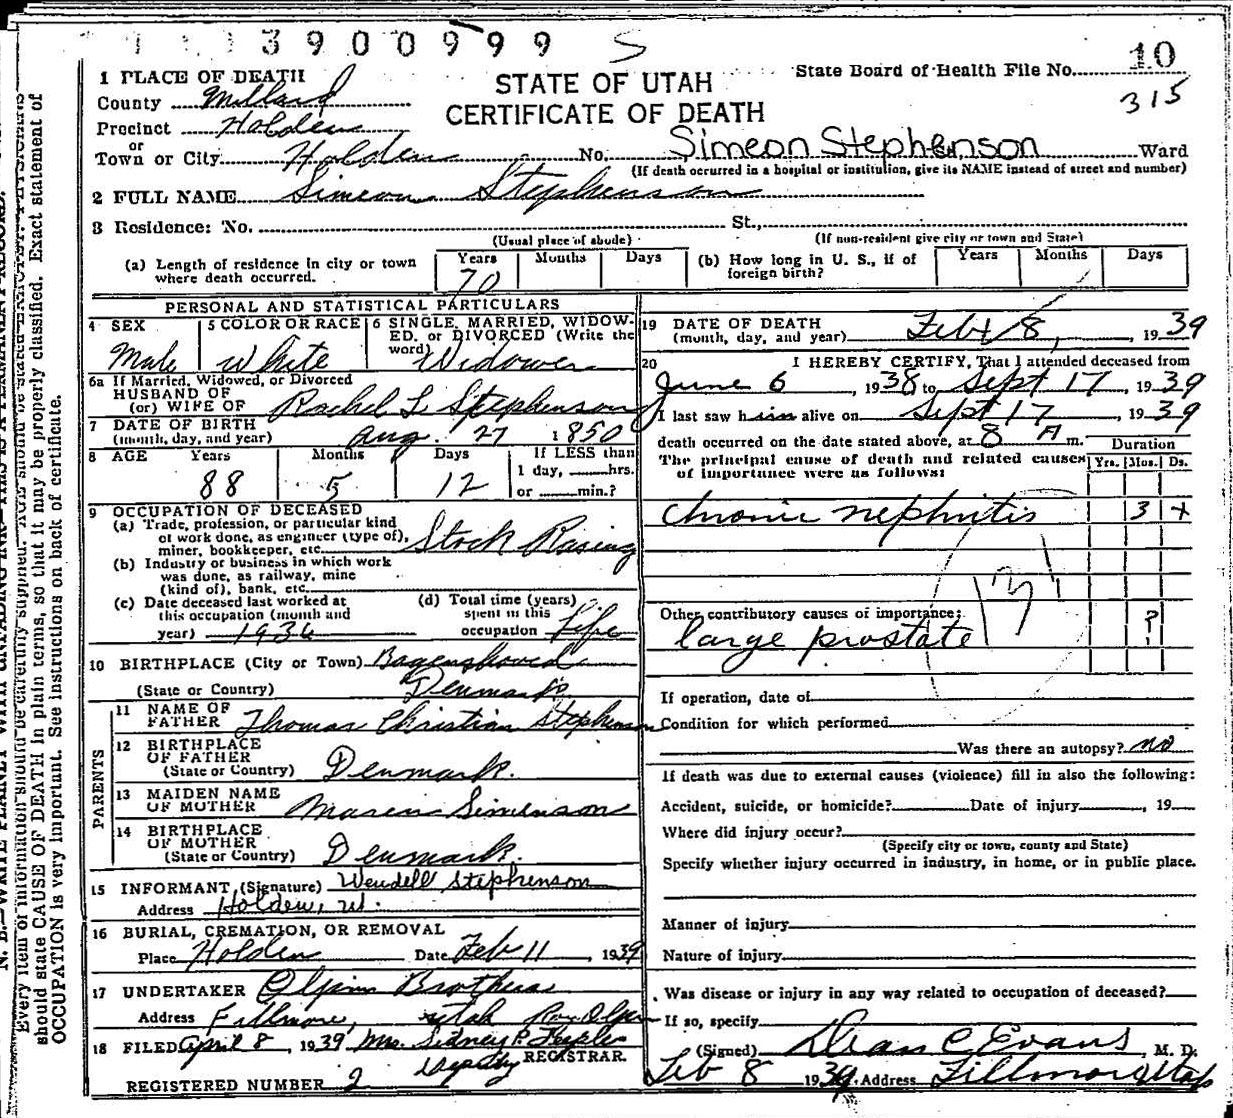 3900999 S
10
315
State Board of Health File No.
STATE OF UTAH
CERTIFICATE OF DEATH
1 PLACE OF DEATH
County Millard
Precinct Holden
or
Town or City Holden No. Simeon Stephenson Ward
(If death occurred in a hospital or institution, give its NAME instead of street and number)
2 FULL NAME Simeon Stephenson
3 Residence: No. St.,
(Usual place of abode) (If non-resident give city or town and State)
(a) Length of residence in city or town where death occurred. Years 70 Months Days
(b) How long in U. S., if of foreign birth? Years Months Days
PERSONAL AND STATISTICAL PARTICULARS
4 SEX Male
5 COLOR OR RACE White
6 SINGLE, MARRIED, WIDOWED, or DIVORCED (Write the word) Widower
6a If Married, Widowed, or Divorced
HUSBAND OF
(or) WIFE OF Rachel L Stephenson
7 DATE OF BIRTH
(month, day, and year) Aug. 27 1850
8 AGE Years 88 Months 5 Days 12 If LESS than
1 day, hrs.
or min.?
9 OCCUPATION OF DECEASED
(a) Trade, profession, or particular kind
of work done, as engineer (type of),
miner, bookkeeper, etc. Stock Rasing
(b) Industry or business in which work
was done, as railway, mine
(kind of), bank, etc.
(c) Date deceased last worked at
this occupation (month and
year) 1936
(d) Total time (years)
spent in this
occupation Life
10 BIRTHPLACE (City or Town)
(State or Country) Denmark
PARENTS
11 NAME OF
FATHER Thomas Christian Stephenson
12 BIRTHPLACE
OF FATHER
(State or Country) Denmark.
13 MAIDEN NAME
OF MOTHER Simenson
14 BIRTHPLACE
OF MOTHER
(State or Country) Denmark.
15 INFORMANT (Signature) Wendell Stephenson
Address Holden, Ut.
16 BURIAL, CREMATION, OR REMOVAL
Place Holden Date Feb 11, 1939
17 UNDERTAKER Olpin Brothers
Address Fillmore, Utah Roy Olpin
18 FILED April 8, 1939 Mrs. Sidney P. REGISTRAR.
Deputy
REGISTERED NUMBER 2
19 DATE OF DEATH
(month, day, and year) Feb 8, 1939
20 I HEREBY CERTIFY, That I attended deceased from
June 6, 1938 to Sept 17, 1939
I last saw him alive on Sept 17, 1939
death occurred on the date stated above, at 8 A m.
The principal cause of death and related causes
of importance were as follows:
Duration
Yrs. Mos. Ds.
chronic nephritis 3 +
131
Other contributory causes of importance:
large prostate ?
If operation, date of
Condition for which performed
Was there an autopsy? no
If death was due to external causes (violence) fill in also the following:
Accident, suicide, or homicide? Date of injury , 19
Where did injury occur?
(Specify city or town, county and State)
Specify whether injury occurred in industry, in home, or in public place.
Manner of injury
Nature of injury
Was disease or injury in any way related to occupation of deceased?
If so, specify
(Signed) Dean C Evans, M. D.
Feb 8 1939. Address Fillmore Utah
N. B.—WRITE PLAINLY WITH UNFADING INK—THIS IS A PERMANENT RECORD.
Every item of information should be carefully supplied. AGE should be stated EXACTLY. PHYSICIANS
should state CAUSE OF DEATH in plain terms, so that it may be properly classified. Exact statement of
OCCUPATION is very important. See instructions on back of certificate.